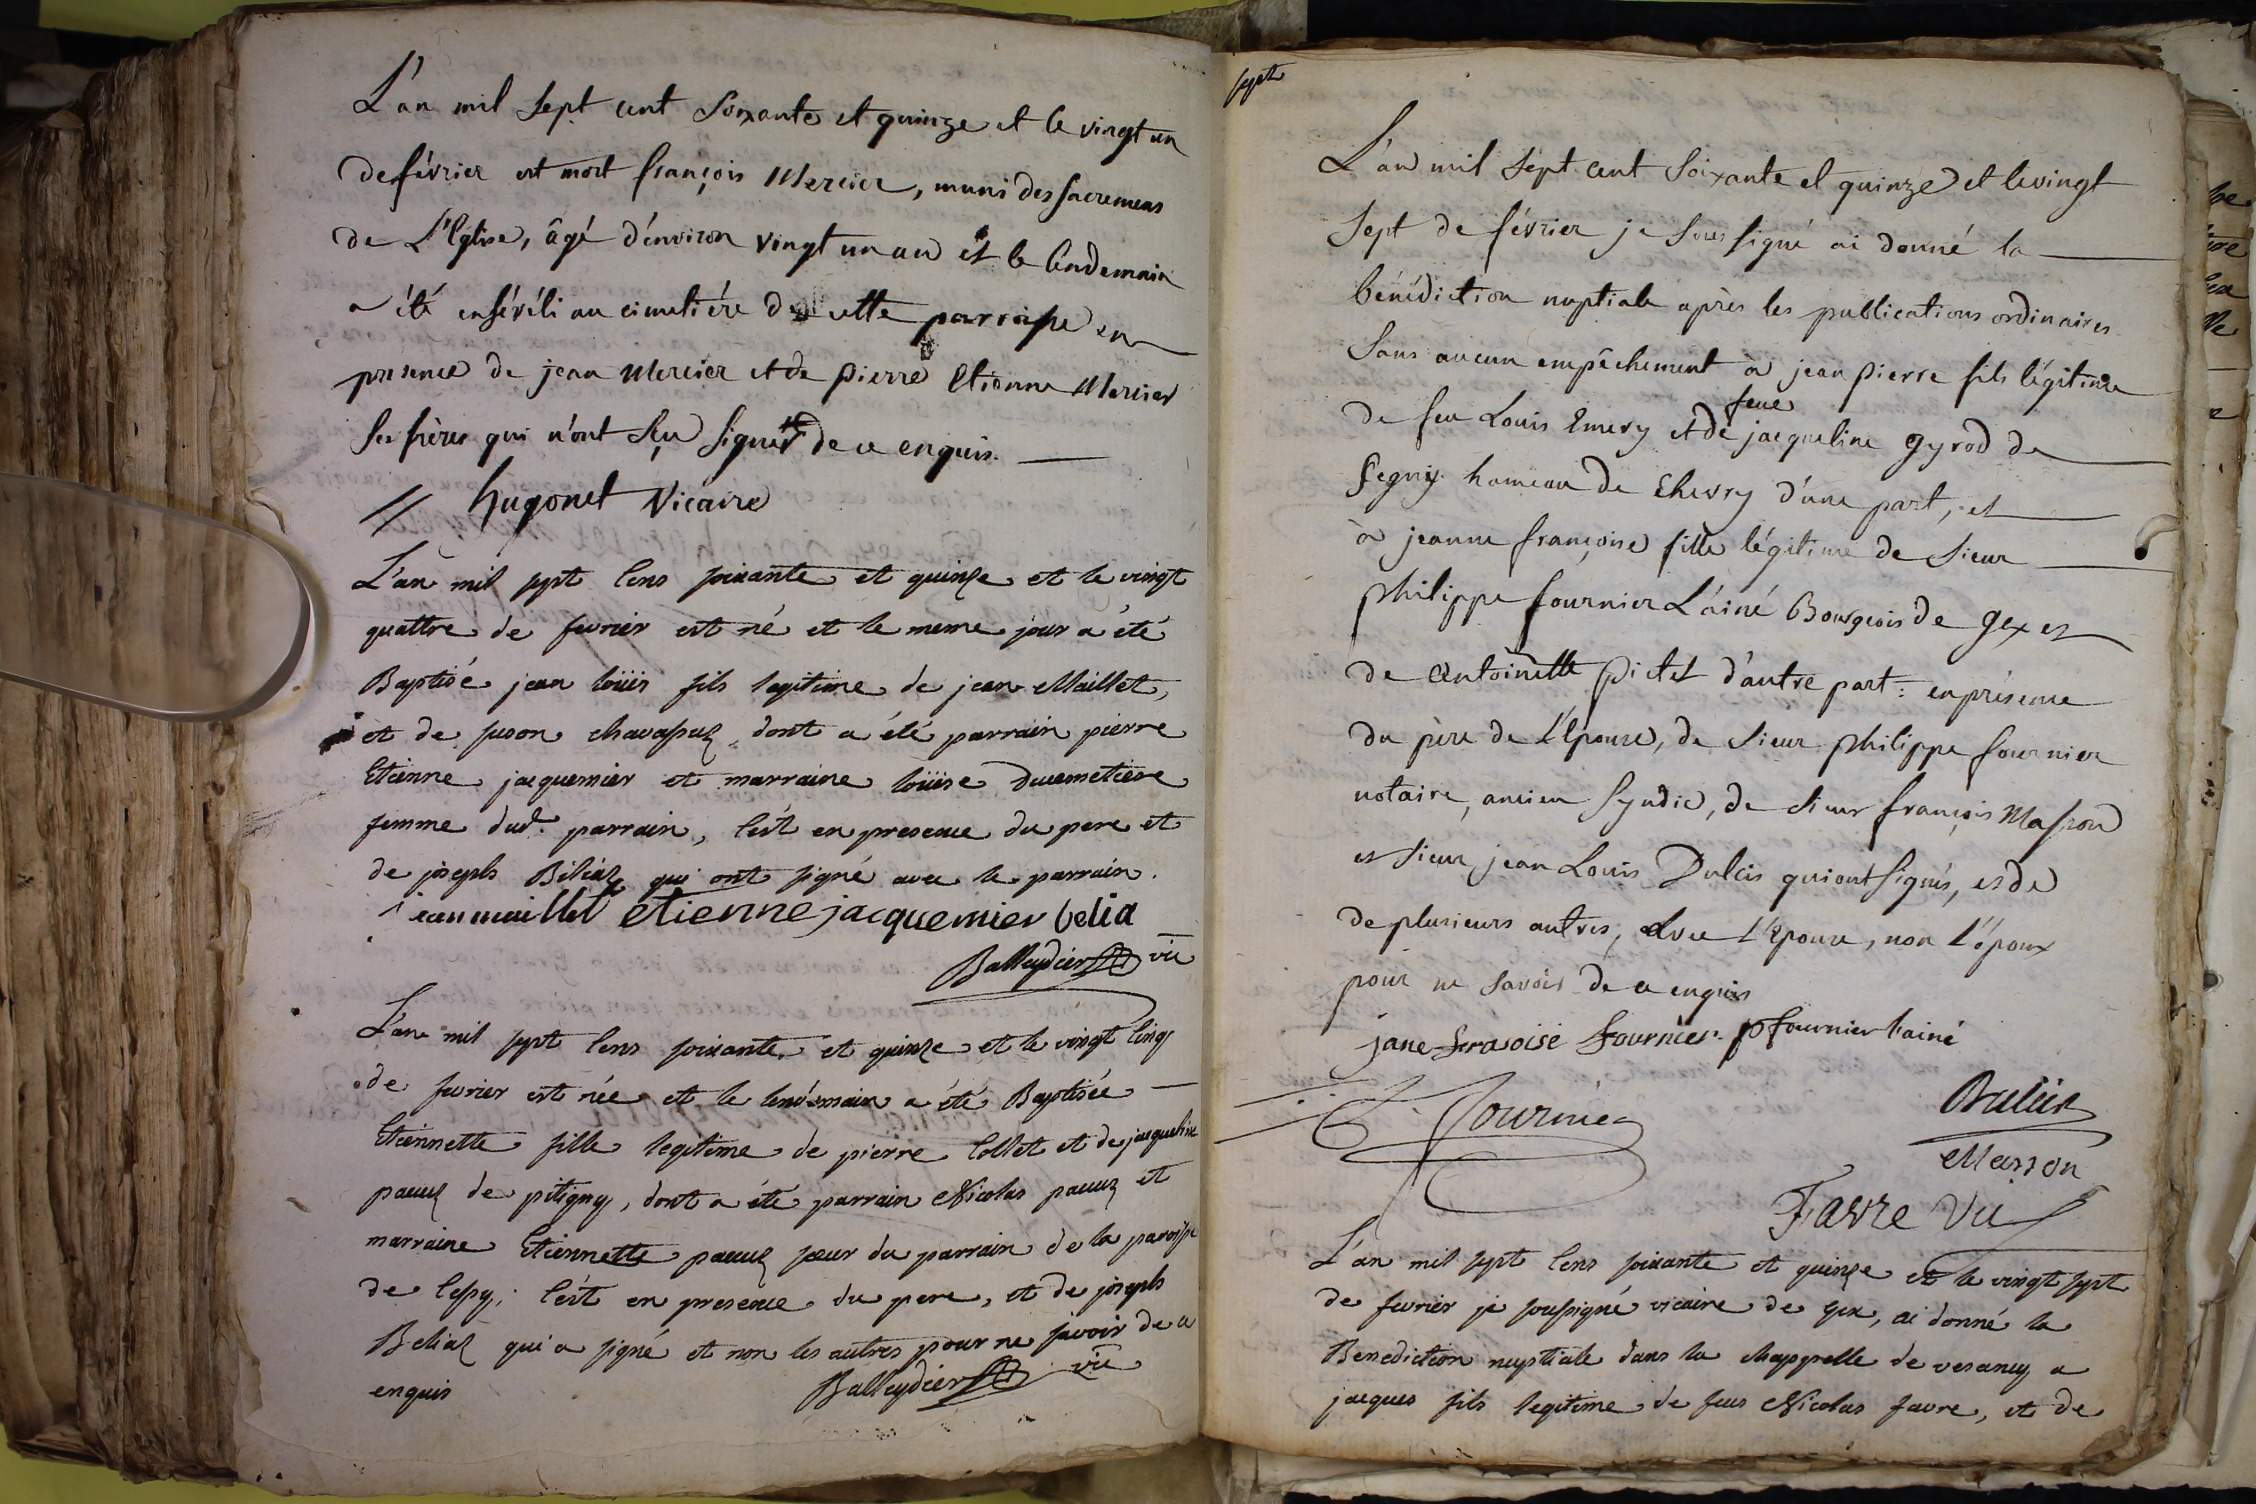 L'an mil sept cent soixante et quinze et le vingt un
de février est mort françois Mercier, muni des sacremens
de L'Eglise, âgé d'environ vingt un an et le lendemain
a été enséveli au cimetiére de cette parroisse en
presence de jean Mercier et de pierre Etienne Mercier
ses frères qui n'ont sçu signer de ce enquis.
hugonet Vicaire
L'an mil sept cens soixante et quinze et le vingt
quattre de fevrier est né et le meme jour a été
Baptisé jean loüis fils legitime de jean Maillet,
et de suson chavassuz dont a été parrain pierre
Etienne jacquemier et marraine loüise Ducemetiere
femme dud. parrain, c'est en presence du pere et
de joseph Béliaz qui ont signé avec le parrain.
jean maillet etienne jacquemier belia
Balleydier vic
L'an mil sept cens soixante et quinze et le vingt cinq
de fevrier est née et le lendemain a été Baptisée
Etiennette fille legitime de pierre Collet et de jacqueline
pacuz de pitigny, dont a été parrain Nicolas pacuz et
marraine Etiennette pacuz soeur du parrain de la paroisse
de Cessy, c'est en presence du pere, et de joseph
Beliaz qui a signé et non les autres pour ne savoir de ce
enquis Balleydier vic
sept
L'an mil sept cent soixante et quinze et le vingt
sept de février je sous signé ai donné la
bénédiction nuptiale après les publications ordinaires
sans aucun empêchement à jean pierre fils légitime
de feu Louis Emery et de feue jacqueline gyrod de
segny hameau de Chevry d'une part, et
à jeanne françoise fille légitime de sieur
philippe fournier L'ainé Bourgeois de gex et
de Antoinette pictet d'autre part : en présence
du père de L'Epouse, de sieur philippe fournier
notaire, ancien syndic, de sieur françois Masson
et sieur jean Louis Dulcis qui ont signés, et de
de plusieurs autres, avec L'Epouse, non L'époux
pour ne savoir de ce enquis
jane frasoise fournier p fournier l'ainé
fournier
Dulcis
Masson
Favre vic
L'an mil sept cens soixante et quinze et le vingt sept
de fevrier je soussigné vicaire de gex, ai donné la
Benediction nuptiale dans la chappelle de vesancy a
jacques fils legitime de feus Nicolas favre, et de